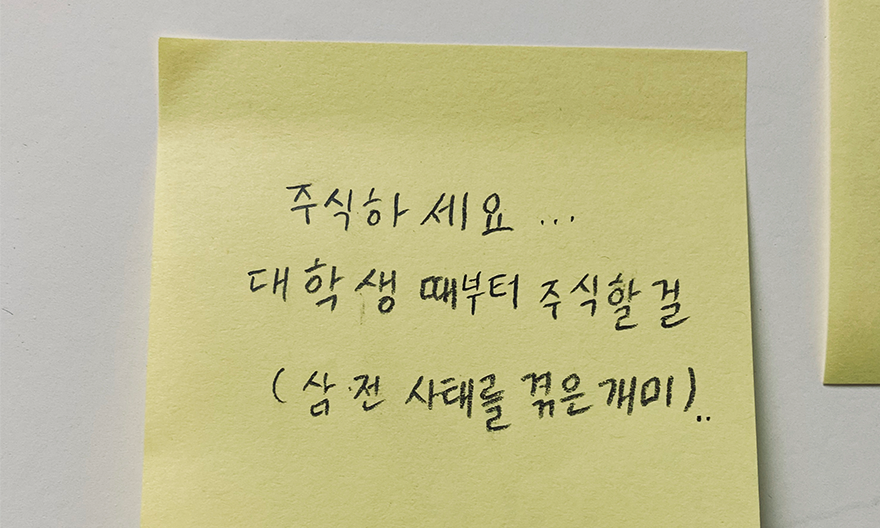 주식하세요...
대학생 때부터 주식할걸
(삼전 사태를 겪은 개미)..